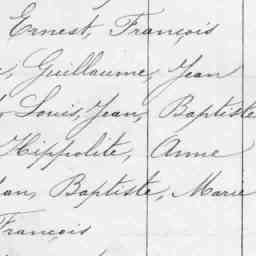 Ernest, François
Guillaume, Jean
Louis, Jean, Baptiste
Hippolite, Anne
Baptiste, Marie
François